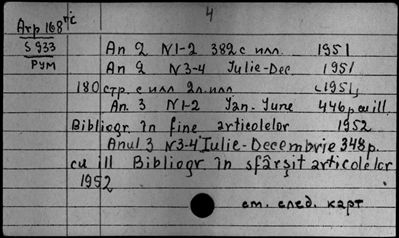 4
Арр 168 г/с
S 933
РУМ
An 2 N1-2 382 с илл. 1951
An 2 N3-4 Iulie-Dec. 1951
180 стр. с илл 2л.илл 1951,
An. 3 N1-2 Ian.-June 446 p cu ill.
Bibliogr. în fine articolelor 1952
Anul 3 N3-4 Iulie-Decembrie 348 p.
cu ill Bibliogr. în sfârşit articolelor
1952
см. след. карт